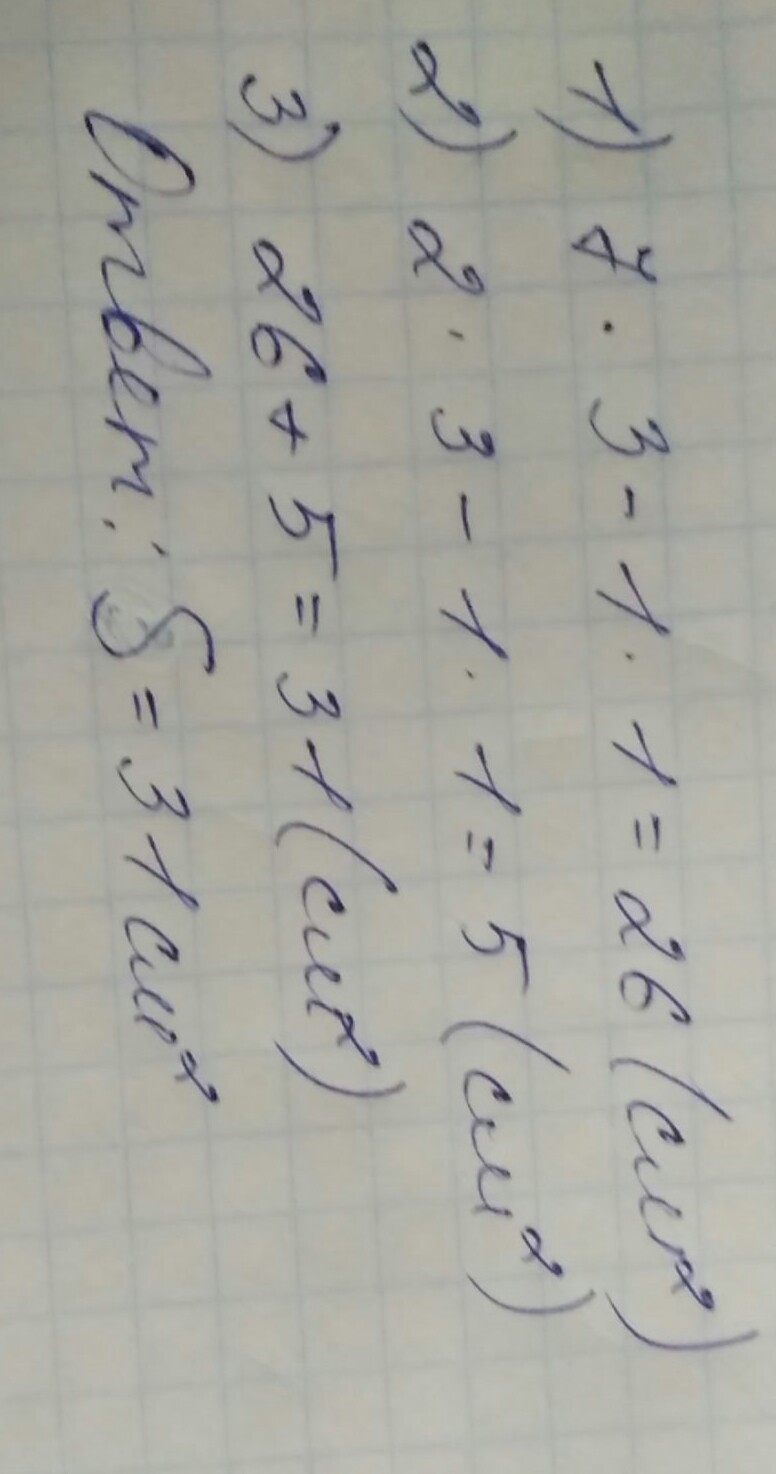 1) 7 · 3 - 1 · 1 = 26 (см²)
2) 2 · 3 - 1 · 1 = 5 (см²)
3) 26 + 5 = 31 (см²)
Ответ: S = 31 см²